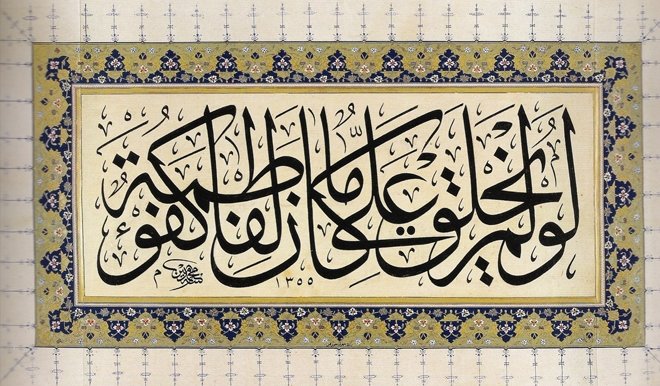 لو لم يخلق علی ما کان لفاطمة کفوء
١٣٥٥